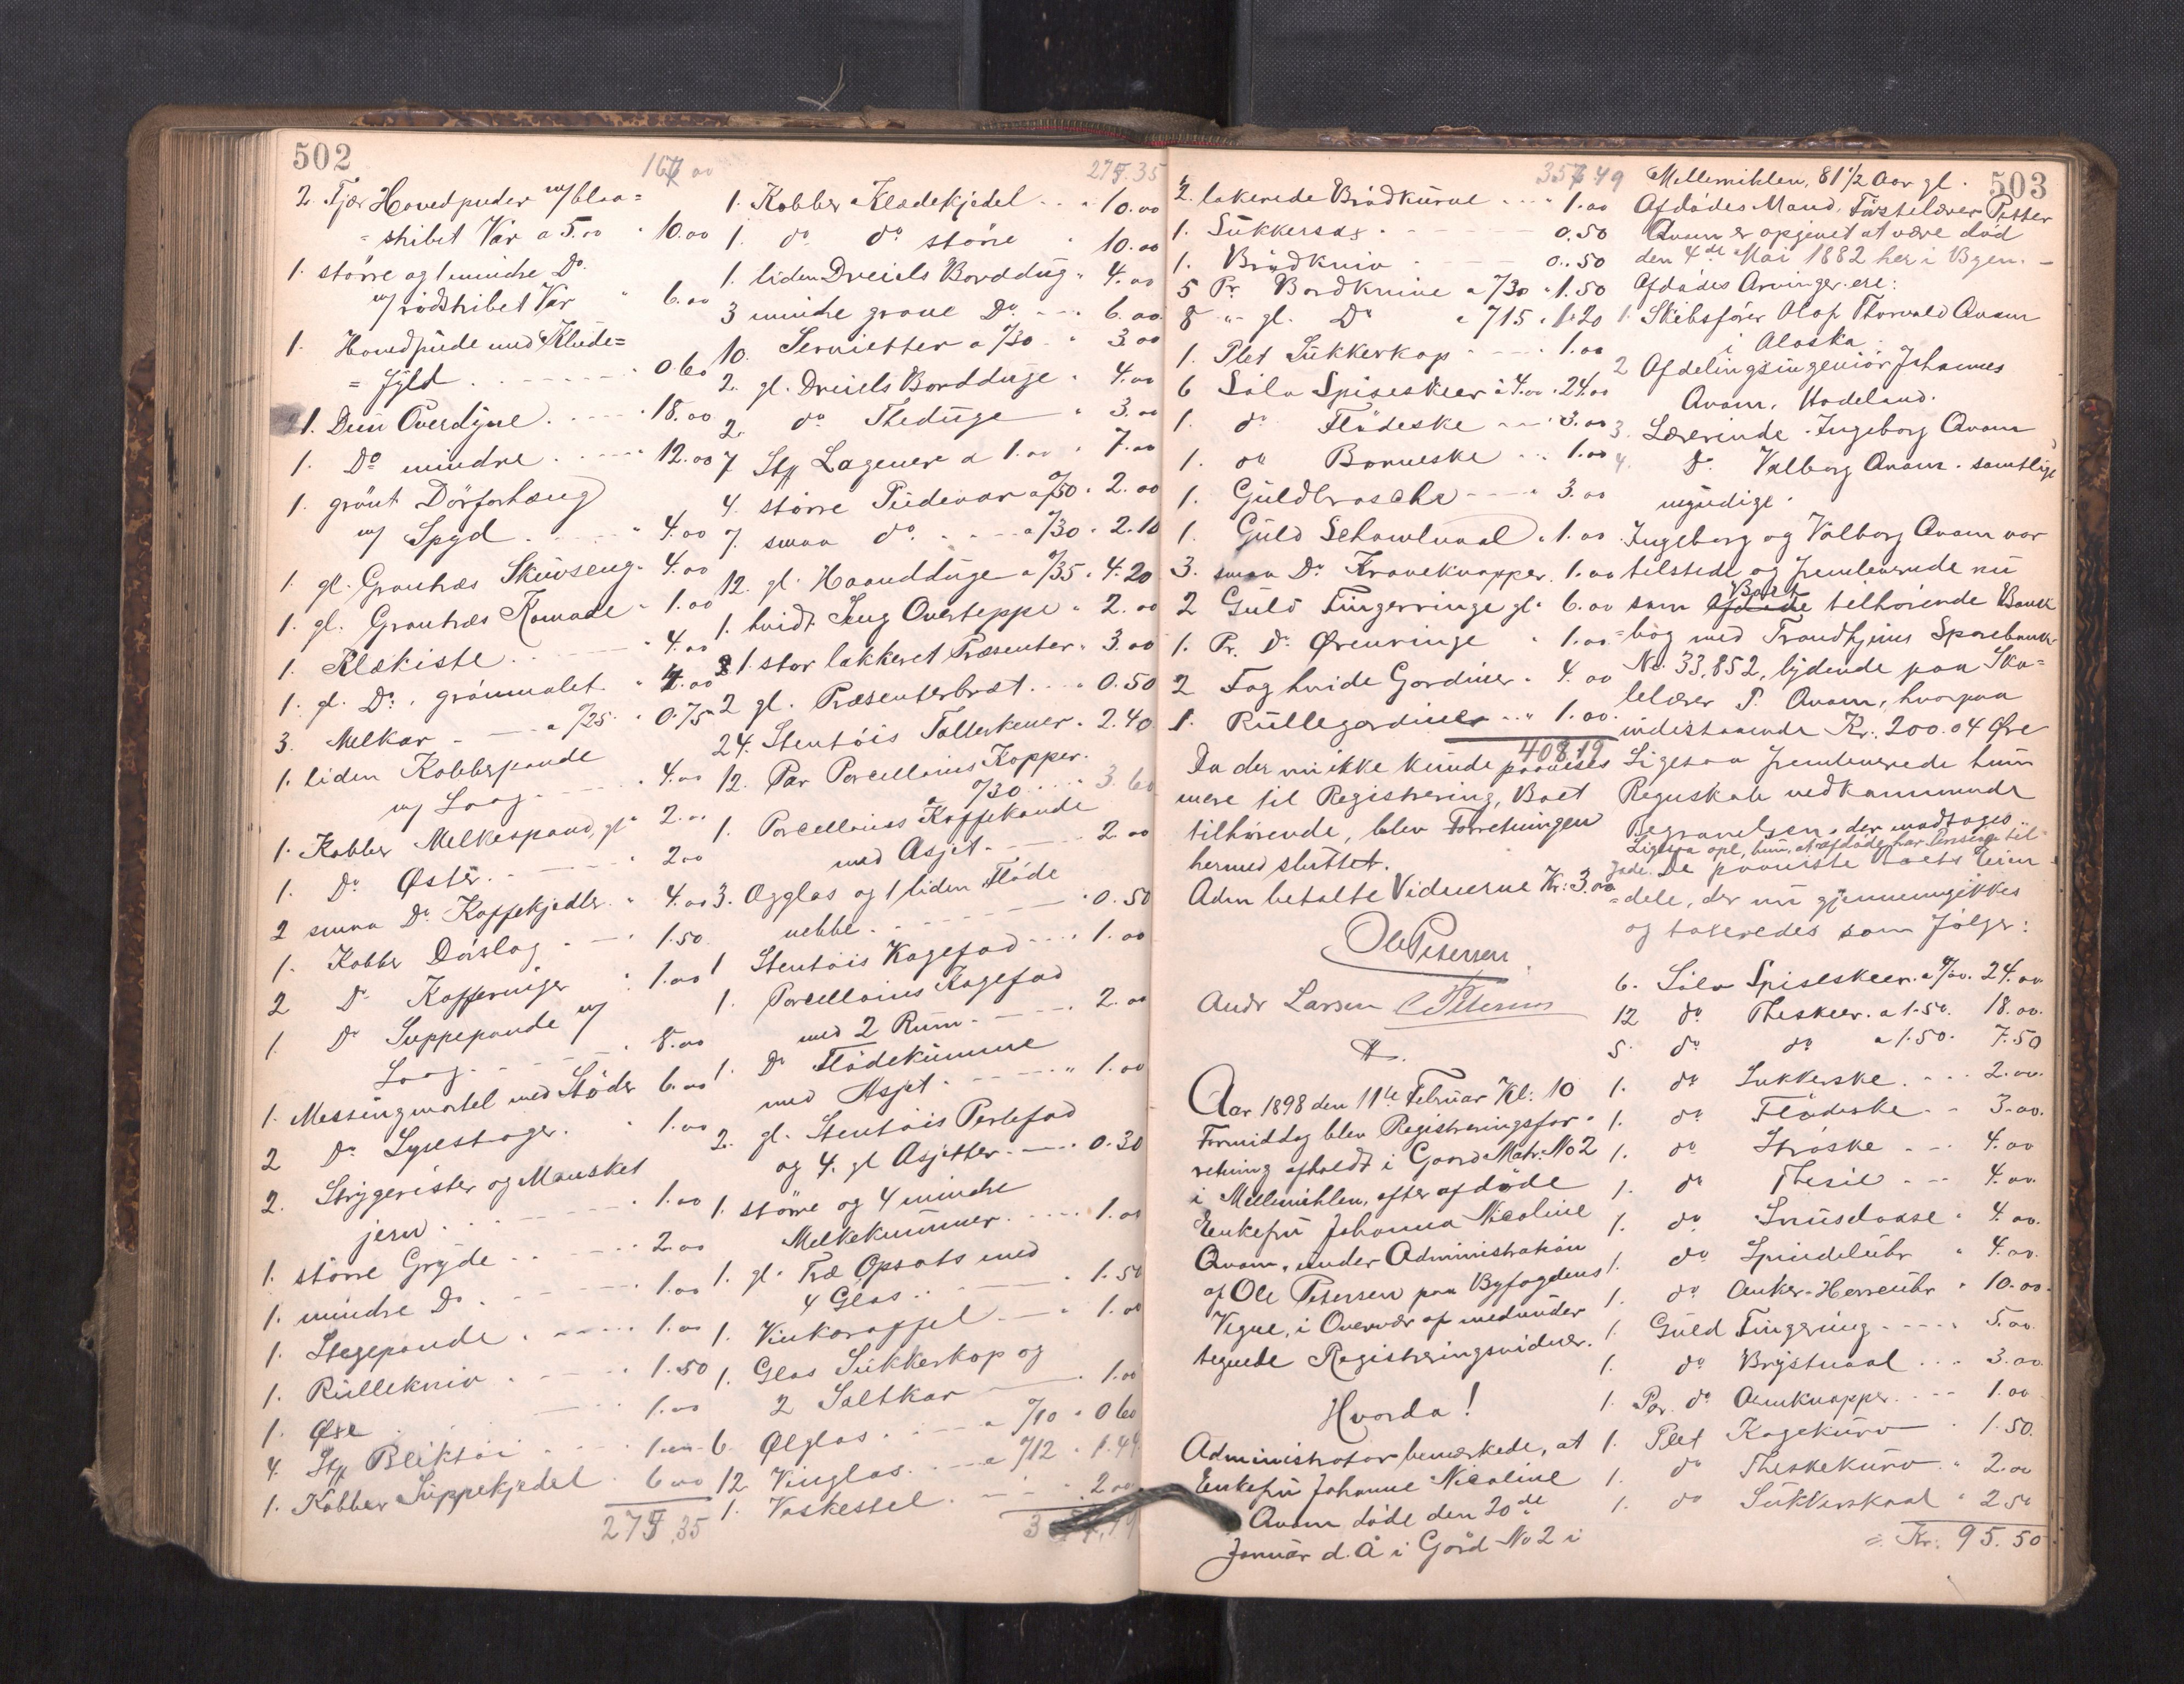 502
167 00
2 Fjær Hovedpuder m/ blaa=
=stribet Vår a 5.00 " 10.00
1. större og 1 mindre Do
m/ rödstribet Vår " 6.00
1. Hovedpude med Klude=
=fyld " 0.60
1. Dun Overdyne " 18.00
1. Do mindre 12.00
1. grönt Dörforhæng
m/ Spyd " 4.00
1. gl. Grantræs Skuvseng " 4.00
1. gl. Grantræs Komode " 1.00
1. Klækiste " 4.00
1. gl. Do, grönmalet " 1.00
3. Melkar a /25 " 0.75
1. liden Kobberpande
m/ Laag " 4.00
1. Kobber Melkespand, gl 2.00
1. Do Øster 2.00
2 smaa Do Kaffekjedler " 4.00
1. Kobber Dörslag 1.50
2 Do Kafferinger " 1.00
1. Do Suppepande m/
Laag " 8.00
1. Messingmortel med Stöder 6.00
2 Do Lysestager " 1.00
2. Strygerister og Mansket
jern " 1.00
1. större Gryde 2.00
1. mindre Do 1.00
1. Stegepande 1.00
1. Rullekniv 1.50
1. Öxe 1.00
4. Stk Bliktöi 1.00
1. Kobber Suppekjedel 6.00
275.35
275.35
1. Kobber Klædekjedel " 10.00
1. do do större " 10.00
1. liden Dreiels Borddug " 4.00
3 mindre grove Do 6.00
10. Servietter a /30 " 3.00
2. gl. Dreiels Bordduge " 4.00
2. do Theduge " 3.00
7 Stk Lagener a 1.00 " 7.00
4. större Pudevar a /50 " 2.00
7. smaa do a /30 " 2.10
12. gl. Haandduge a /35 " 4.20
1. hvidt Seng Overteppe " 2.00
1. stor lakkeret Præsenter " 3.00
2 gl. Præsenterbræt 0.50
24. Stentöis Tallerkener " 2.40
12. Par Porcellains Kopper
a /30 3.60
1. Porcellains Kaffekande
med Asjet 2.00
3. Ægglas og 1 liden Flöde
nebbe " 0.50
1 Stentöis Kagefad 1.00
1. Porcellains Kagefad
med 2 Rum 2.00
1. Do Flödekumme
med Asjet " 1.00
2. gl. Stentöis Perlefad
og 4. gl Asjetter 0.30
1. större og 4 mindre
Melkekummer 1.00
1. gl. Træ Opsats med
4 Glas " 1.50
1. Vinkaraffel " 1.00
1. Glas Sukkerkop og
2 Saltkar 1.00
6. Ølglas a /10 " 0.60
12. Vinglas a /12 " 1.44
1. Vaskestel 2.00
503
357 49
2. lakerede Brödkurve 1.00
1. Sukkersax 0.50
1. Brödkniv 0.50
5 Pr Bordknive a /30 " 1.50
8 " gl. Do a /15 " 1.20
1. Plet Sukkerkop 1.00
6 Sölv Spiseskeer a 4.00 " 24.00
1. do Flödeske 3.00
1. do Barneske 1.00
1. Guldbrosche 3.00
1. Guld Schawlnaal " 1.00
3. smaa Do Kraveknapper 1.00
2 Guld Fingerringe gl. 6.00
1. Pr. Do Ørenringe " 1.00
2 Fag hvide Gardiner " 4.00
1. Rullegardiner " 1.00
408.19
Da der nu ikke kunde paavises
mere til Registrering, Boet
tilhörende, blev Forretningen
hermed sluttet.
Adm betalte Vidnerne Kr: 3.00
Ole Petersen
Andr Larsen C Petersen
Aar 1898 den 11te Februar Kl: 10
Formiddag blev Registreringsfor=
retning afholdt i Gaard Matr: No 2
i Mellemihlen, efter afdöde
Enkefru Johanna Nicoline
Qvam, under Administration
af Ole Petersen paa Byfogdens
Vegne, i Overvær af medunder
tegnede Registreringsvidner.
Hvorda!
Administrator bemærkede, at
Enkefru Johanna Nicoline
Qvam döde den 20de
Januar d. Å i Gård No 2 i
Mellemihlen, 81 1/2 Aar gl.
Afdödes Mand, Förstelærer Petter
Qvam er opgivet at være död
den 4de Mai 1882 her i Byen.
Afdödes Arvinger ere:
1. Skibsförer Olaf Thorvald Qvam
i Alaska.
2 Afdelingsingeniör Johannes
Qvam, Hadeland.
3. Lærerinde Ingeborg Qvam
4. Do Valborg Qvam. samtlige
myndige.
Ingeborg og Valborg Qvam var
tilstede og fremleverede nu
som Boet tilhörende Bank
=bog med Trondhjems Sparebank
No. 33,852, lydende paa Sko=
lelærer P. Qvam, hvorpaa
indestaaende Kr. 200.04 Øre
Ligesaa fremleverede hun
Regnskab vedkommende
Begravelsen, der modtoges
Ligesaa opl. hun, at afdöde har Pension til
gode. De paaviste Boets Eien
=dele, der nu gjennemgikkes
og taxeredes som fölger:
6. Sölv Spiseskeer a 4/00. 24.00
12 do Theskeer. a 1.50. 18.00.
5. do do a 1.50. 7.50
1. do Sukkerske 2.00.
1. do Flödeske 3.00.
1. do Ströske 4.00
1. do Thesil 4.00.
1. do Snusdaase " 4.00.
1. do Spindeluhr " 4.00.
1. do Anker-Herreuhr " 10.00.
1. Guld Fingering 5.00.
1. do Brystnaal 3.00.
1. Par. do Ærmknapper 1.00
1. Plet Kagekurv " 1.50.
1. do Theskekurv " 2.00
1. do Sukkerskaal " 2.50
= Kr: 95.50